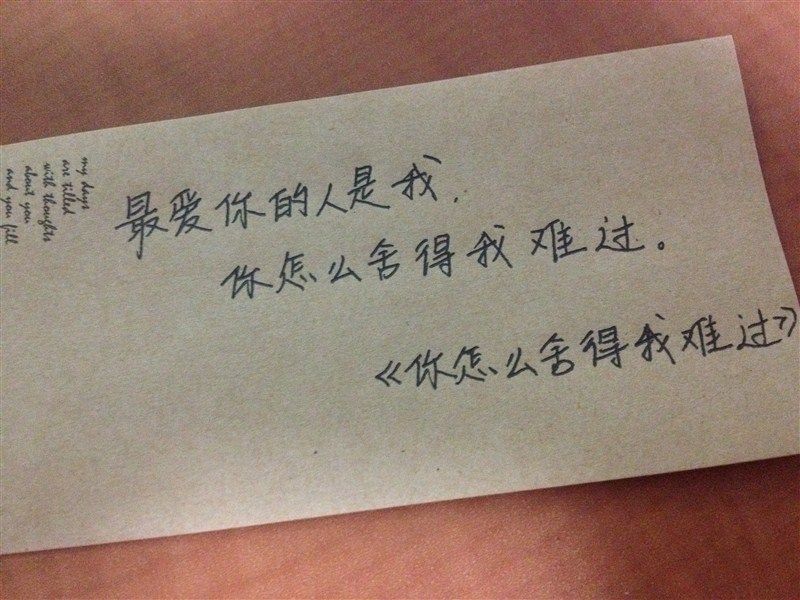 my days
are filled
with thoughts
about you
and you fill
最爱你的人是我.
你怎么舍得我难过。
《你怎么舍得我难过》